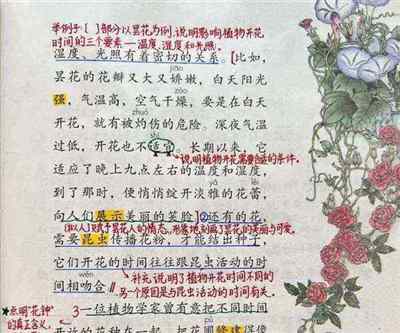 举例子:[ ]部分以昙花为例,说明影响植物开花
时间的三个要素—温度、湿度和光照。
湿度、光照有着密切的关系。[比如,
jiāo
昙花的花瓣又大又娇嫩,白天阳光
强,气温高,空气干燥,要是在白天
zhuó
开花,就有被灼伤的危险。深夜气温
过低,开花也不适宜。长期以来,它
说明植物开花需要合适的条件。
适应了晚上九点左右的温度和湿度,
lěi
到了那时,便悄悄绽开淡雅的花蕾,
向人们展示美丽的笑脸]②还有的花,
[拟人]赋予昙花人的情态,形象地刻画了昙花的美丽与可爱。
需要昆虫传播花粉,才能结出种子,
它们开花的时间往往跟昆虫活动的时
wěn
间相吻合
补充说明了植物开花时间不同的
另一个原因是与昆虫活动的时间有关。
★点明“花钟”
的真正含义。
3一位植物学家曾有意把不同时间
开放的花种在一起,把花圃修建得像